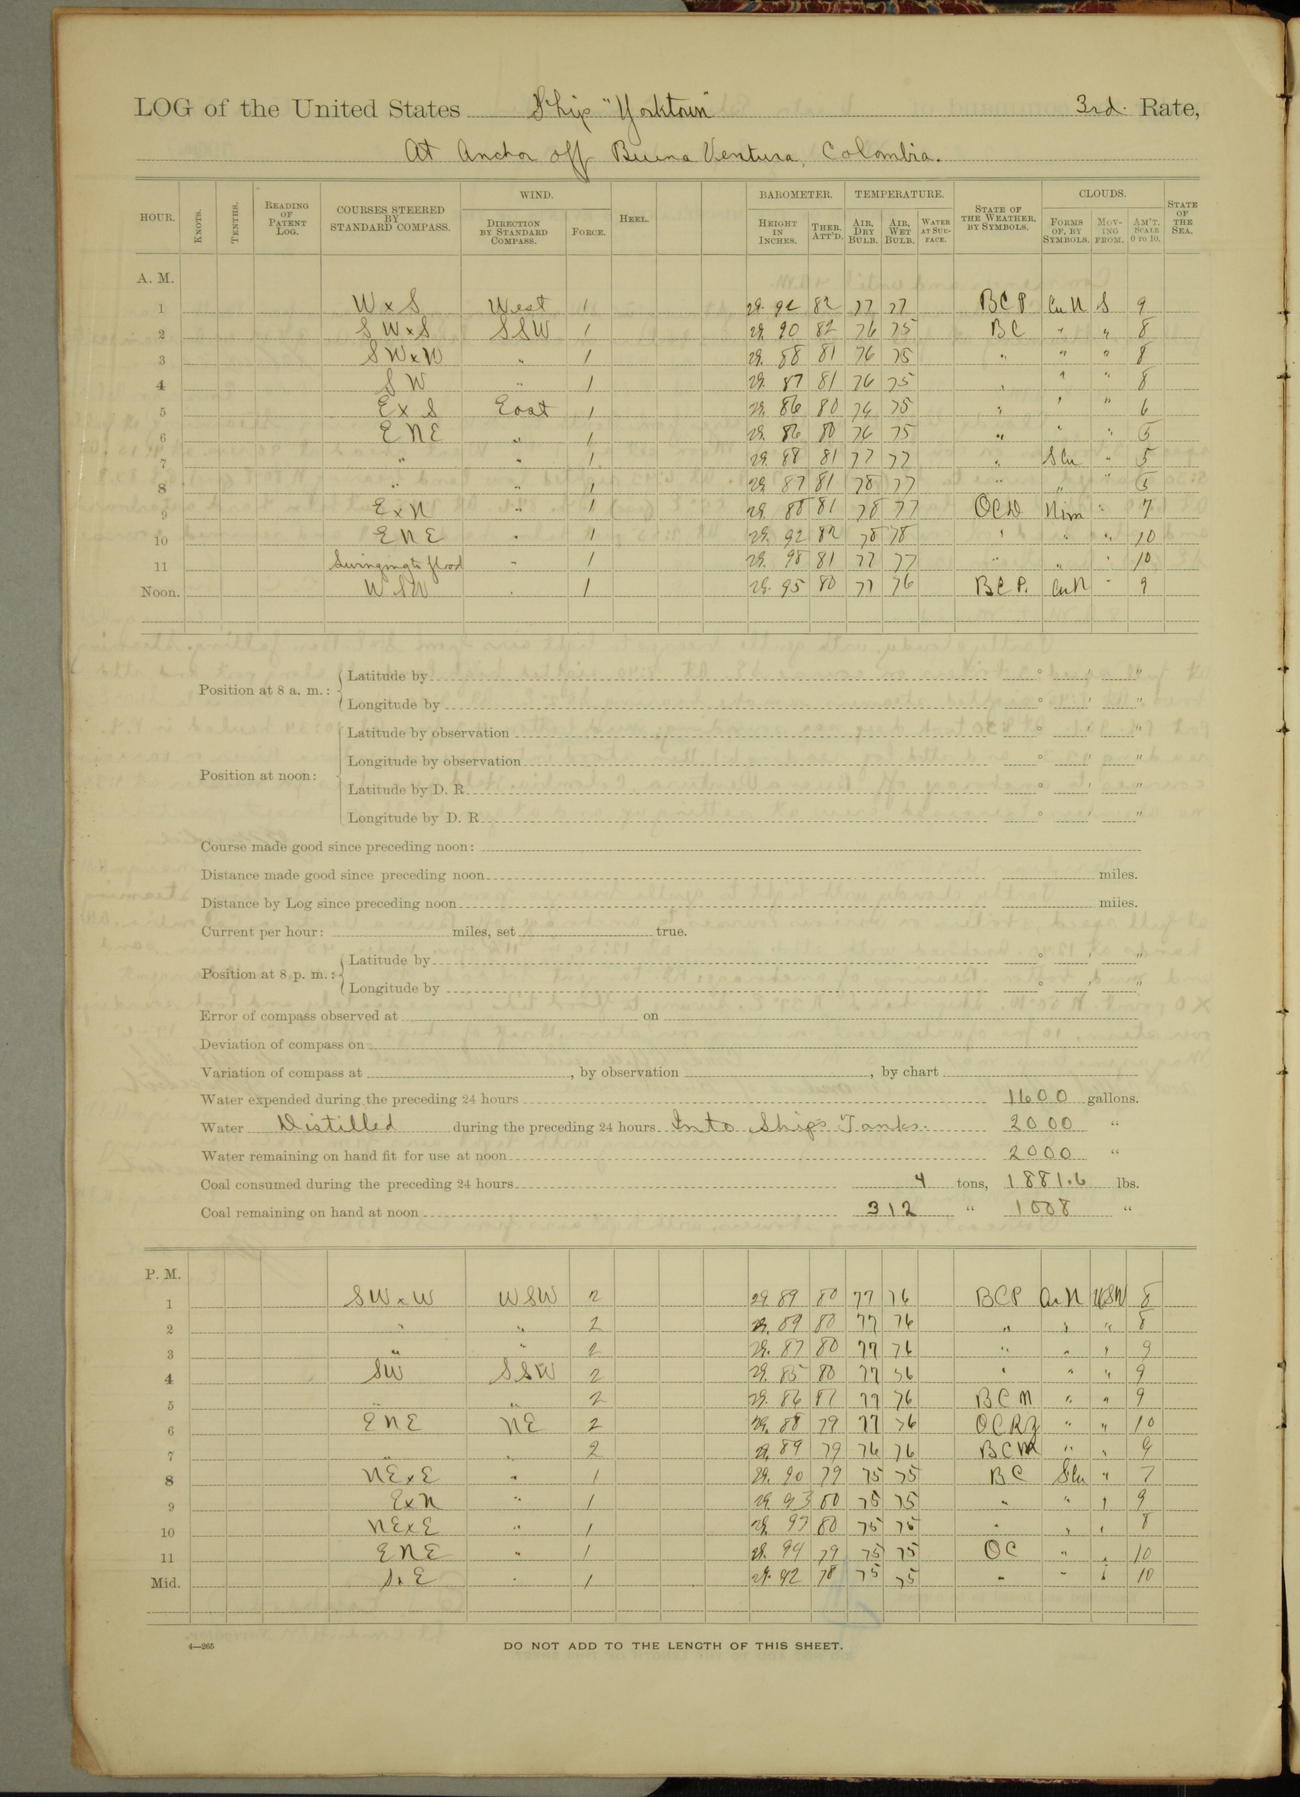 LOG of the United States Ship "Yorktown" 3rd Rate,
At Anchor off Buena Ventura, Colombia.
HOUR. KNOTS. TENTHS. READING OF PATENT LOG. COURSES STEERED BY STANDARD COMPASS. WIND. DIRECTION BY STANDARD COMPASS. FORCE. HEEL. BAROMETER. HEIGHT IN INCHES. THER. ATT'D. TEMPERATURE. AIR, DRY BULB. AIR, WET BULB. WATER AT SURFACE. STATE OF THE WEATHER, BY SYMBOLS. CLOUDS. FORMS OF, BY SYMBOLS. MOVING FROM. AM'T. SCALE 0 TO 10. STATE OF THE SEA.
A. M.
1 W x S West 1 29. 92 82 77 77 BCP Cu N S 9
2 SW x S SSW 1 29. 90 82 76 75 BC " " 8
3 SW x W " 1 29. 88 81 76 75 " " " 8
4 SW " 1 29. 87 81 76 75 " " " 8
5 E x S East 1 29. 86 80 76 75 " " " 6
6 ENE " 1 29. 86 80 76 75 " " " 5
7 " " 1 29. 88 81 77 77 " S Cu " 5
8 " " 1 29. 87 81 78 77 " " " 5
9 E x N " 1 29. 88 81 78 77 OCD Nim " 7
10 ENE " 1 29. 92 82 78 78 " " " 10
11 Swinging to flood " 1 29. 98 81 77 77 " " " 10
Noon. WSW " 1 29. 95 80 77 76 BCP. Cu N " 9
Position at 8 a. m.: Latitude by ° ' "
Longitude by ° ' "
Position at noon: Latitude by observation ° ' "
Longitude by observation ° ' "
Latitude by D. R. ° ' "
Longitude by D. R. ° ' "
Course made good since preceding noon:
Distance made good since preceding noon miles.
Distance by Log since preceding noon miles.
Current per hour: miles, set true.
Position at 8 p. m.: Latitude by ° ' "
Longitude by ° ' "
Error of compass observed at on
Deviation of compass on
Variation of compass at , by observation , by chart
Water expended during the preceding 24 hours 1600 gallons.
Water Distilled during the preceding 24 hours Into Ship's Tanks. 2000 "
Water remaining on hand fit for use at noon 2000 "
Coal consumed during the preceding 24 hours 4 tons, 1881.6 lbs.
Coal remaining on hand at noon 312 " 1008 "
P. M.
1 SW x W WSW 2 29. 89 80 77 76 BCP Cu N WSW 8
2 " " 2 29. 89 80 77 76 " " " 8
3 " " 2 29. 87 80 77 76 " " " 9
4 SW SSW 2 29. 85 80 77 76 " " " 9
5 " " 2 29. 86 81 77 76 BCM " " 9
6 ENE NE 2 29. 88 79 77 76 " " 10
7 " " 2 29. 89 79 76 76 " " 9
8 NE x E " 1 29. 90 79 75 75 BC S Cu " 7
9 E x N " 1 29. 93 80 75 75 " " " 9
10 NE x E " 1 29. 93 80 75 75 " " " 8
11 ENE " 1 29. 94 79 75 75 OC " " 10
Mid. " 1 29. 92 78 75 75 " " " 10
4—265 DO NOT ADD TO THE LENGTH OF THIS SHEET.